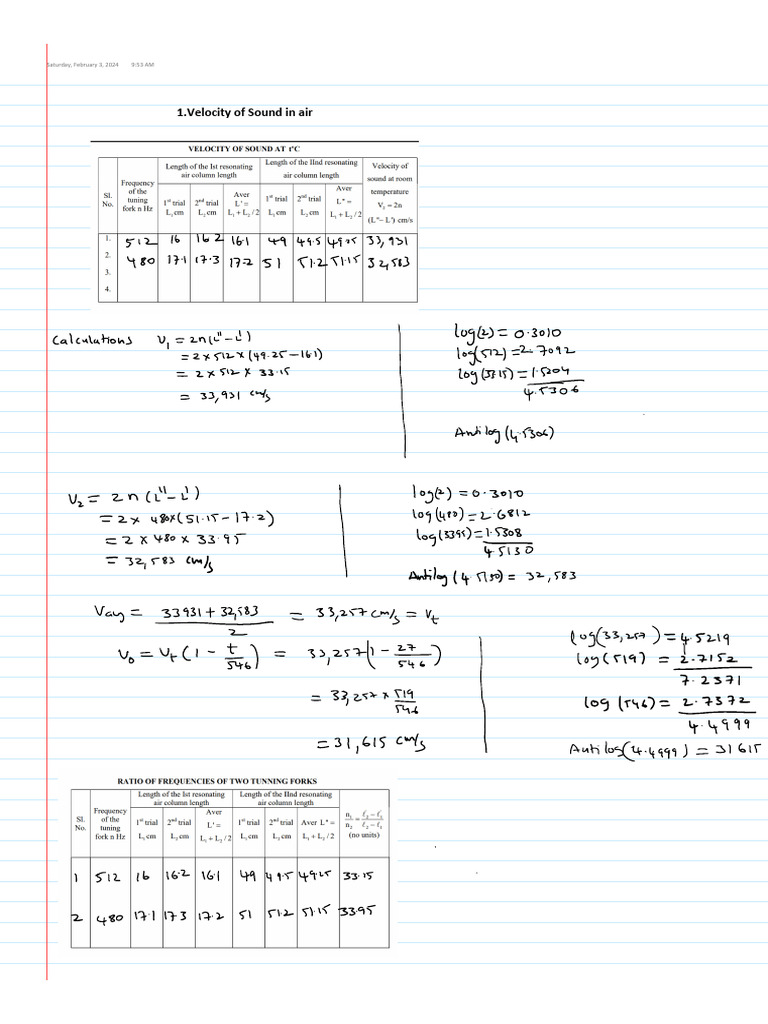 Saturday, February 3, 2024 9:53 AM
1.Velocity of Sound in air
VELOCITY OF SOUND AT t°C
Sl. No. | Frequency of the tuning fork n Hz | Length of the Ist resonating air column length | Length of the IInd resonating air column length | Velocity of sound at room temperature V₁ = 2n (L"– L') cm/s
1st trial L₁ cm | 2nd trial L₂ cm | Aver L' = L₁ + L₂ / 2 | 1st trial L₁ cm | 2nd trial L₂ cm | Aver L" = L₁ + L₂ / 2
1. 512 16 16.2 16.1 49 49.5 49.25 33,931
2. 480 17.1 17.3 17.2 51 51.2 51.15 32,583
3.
4.
Calculations V₁ = 2n(L"–L')
= 2 x 512 x (49.25 – 16.1)
= 2 x 512 x 33.15
= 33,931 cm/s
log(2) = 0.3010
log(512) = 2.7092
log(33.15) = 1.5204
4.5306
Antilog (4.5306)
V₂ = 2n (L"–L')
= 2 x 480x(51.15 – 17.2)
= 2 x 480 x 33.95
= 32,583 cm/s
log(2) = 0.3010
log(480) = 2.6812
log(3395) = 1.5308
4.5130
Antilog (4.5130) = 32,583
Vavg = 33931 + 32,583 / 2 = 33,257 cm/s = Vt
V₀ = Vt (1 – t/546) = 33,257(1 – 27/546)
= 33,257 x 519/546
= 31,615 cm/s
log(33,257) = 4.5219
log(519) = 2.7152
7.2371
log(546) = 2.7372
4.4999
Antilog(4.4999) = 31615
RATIO OF FREQUENCIES OF TWO TUNNING FORKS
Sl. No. | Frequency of the tuning fork n Hz | Length of the Ist resonating air column length | Length of the IInd resonating air column length | n₁/n₂ = ℓ₂ – ℓ₁/ℓ₂ – ℓ₁ (no units)
1st trial L₁ cm | 2nd trial L₂ cm | Aver L' = L₁ + L₂ / 2 | 1st trial L₁ cm | 2nd trial L₂ cm | Aver L" = L₁ + L₂ / 2
1 512 16 16.2 16.1 49 49.5 49.25 33.15
2 480 17.1 17.3 17.2 51 51.2 51.15 33.95